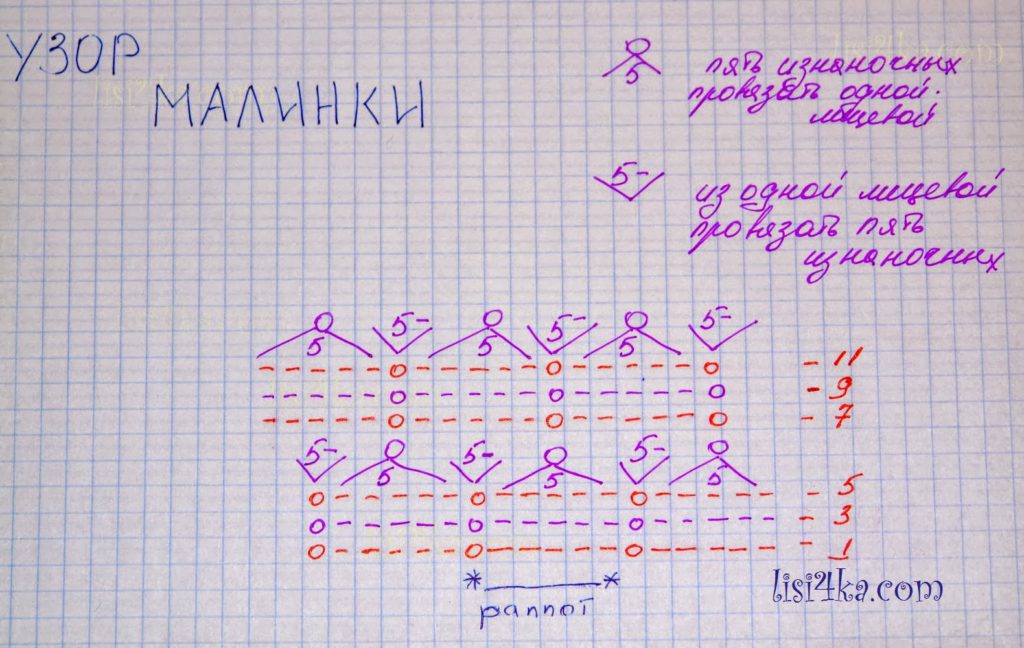 УЗОР
МАЛИНКИ
5
пять изнаночных
провязать одной
лицевой
5-
из одной лицевой
провязать пять
изнаночных
5 5- 5 5- 5 5-
- - - - - - O - - - - - - O - - - - - - O - 11
- - - - - - O - - - - - - O - - - - - - O - 9
- - - - - - O - - - - - - O - - - - - - O - 7
5- 5 5- 5 5- 5
O - - - - - - O - - - - - - O - - - - - - - 5
O - - - - - - O - - - - - - O - - - - - - - 3
O - - - - - - O - - - - - - O - - - - - - - 1
* *
раппот
lisi4ka.com